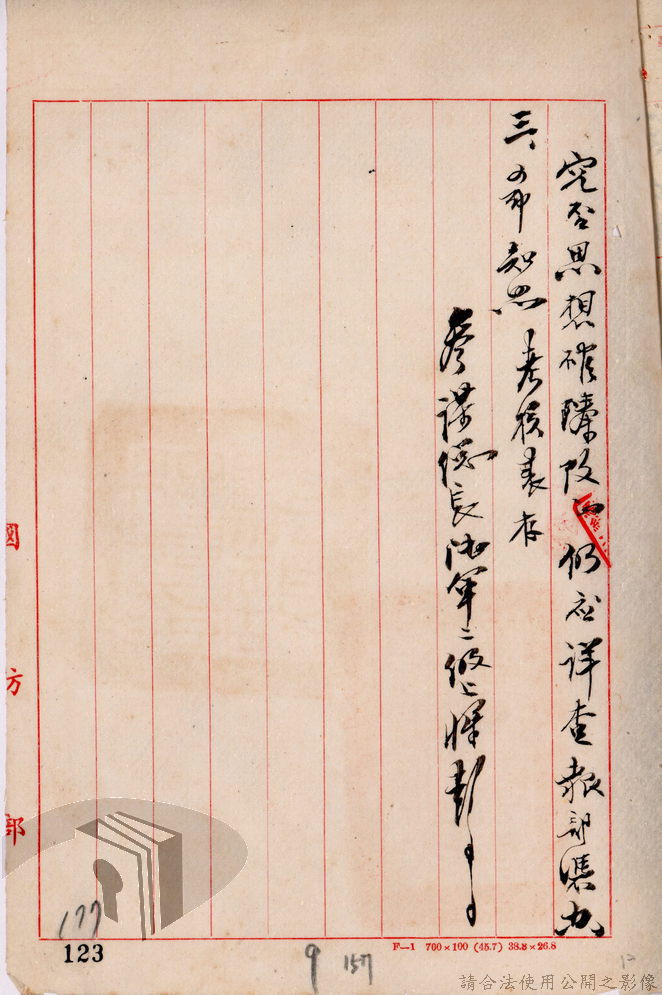 究否思想確臻改正仍應詳查報部憑办
三、希知照考核表存
參謀總長陸軍二級上將彭
國防部
177
123
9 157
F—1 700×100 (45.7) 38.8×26.8
12
請合法使用公開之影像